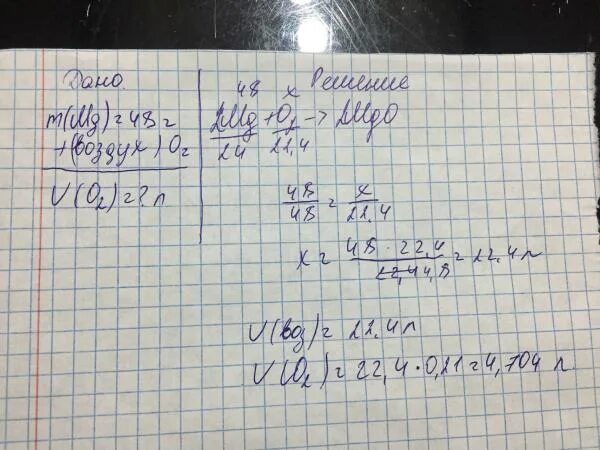 Дано
m(Mg)=48г
+(воздух) O₂
V(O₂)=? л
Решение
48 x
2Mg+O₂→2MgO
24 22,4
48/48 = x/22,4
x = 48·22,4 / 22,4 48 = 22,4 л
V(воз)= 22.4 л
V(O₂)=22,4·0,21=4,704 л